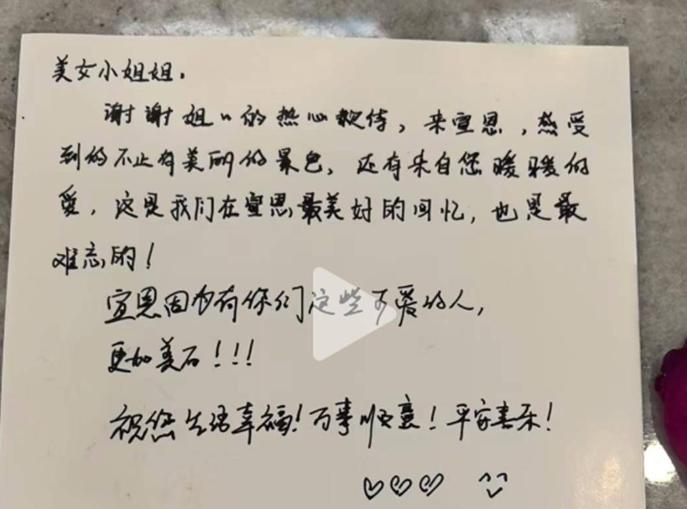 美女小姐姐.
谢谢姐〃的热心款待,来宣恩,感受
到的不止有美丽的景色,还有来自您暖暖的
爱,这是我们在宣恩最美好的回忆,也是最
难忘的!
宣恩因为有你们这些可爱的人,
更加美石!!!
祝您生活幸福!万事顺意!平家喜乐!